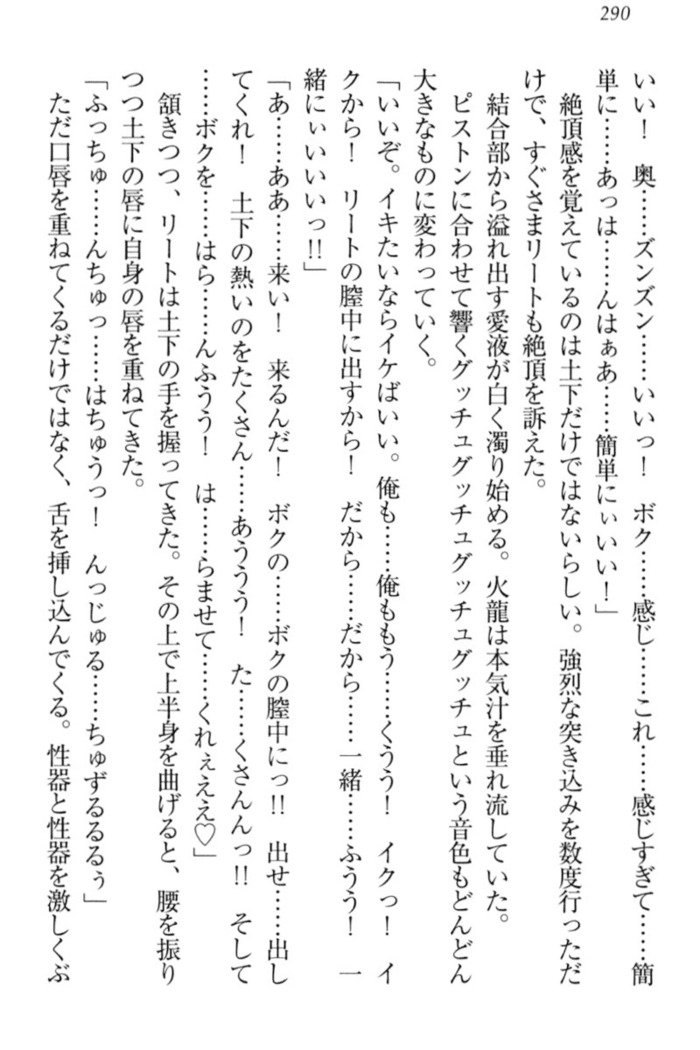 290
いい！　奥……ズンズン……いいっ！　ボク……感じ……これ……感じすぎて……簡
単に……あっは……んはぁあ……簡単にぃいい！」
　絶頂感を覚えているのは土下だけではないらしい。強烈な突き込みを数度行っただ
けで、すぐさまリートも絶頂を訴えた。
　結合部から溢れ出す愛液が白く濁り始める。火龍は本気汁を垂れ流していた。
　ピストンに合わせて響くグッチュグッチュグッチュという音色もどんどん
大きなものに変わっていく。
「いいぞ。イキたいならイケばいい。俺も……俺ももう……くうう！　イクっ！　イ
クから！　リートの膣中に出すから！　だから……だから……一緒……ふうう！　一
緒にぃいいいっ!!」
「あ……ああ……来い！　来るんだ！　ボクの……ボクの膣中にっ!!　出せ……出し
てくれ！　土下の熱いのをたくさん……あううう！　た……くさんんっ!!　そして
……ボクを……はら……んふうう！　は……らませて……くれぇええ♡」
　頷きつつ、リートは土下の手を握ってきた。その上で上半身を曲げると、腰を振り
つつ土下の唇に自身の唇を重ねてきた。
「ふっちゅ……んちゅっ……はちゅうっ！　んっじゅる……ちゅずるるるぅ」
　ただ口唇を重ねてくるだけではなく、舌を挿し込んでくる。性器と性器を激しくぶ